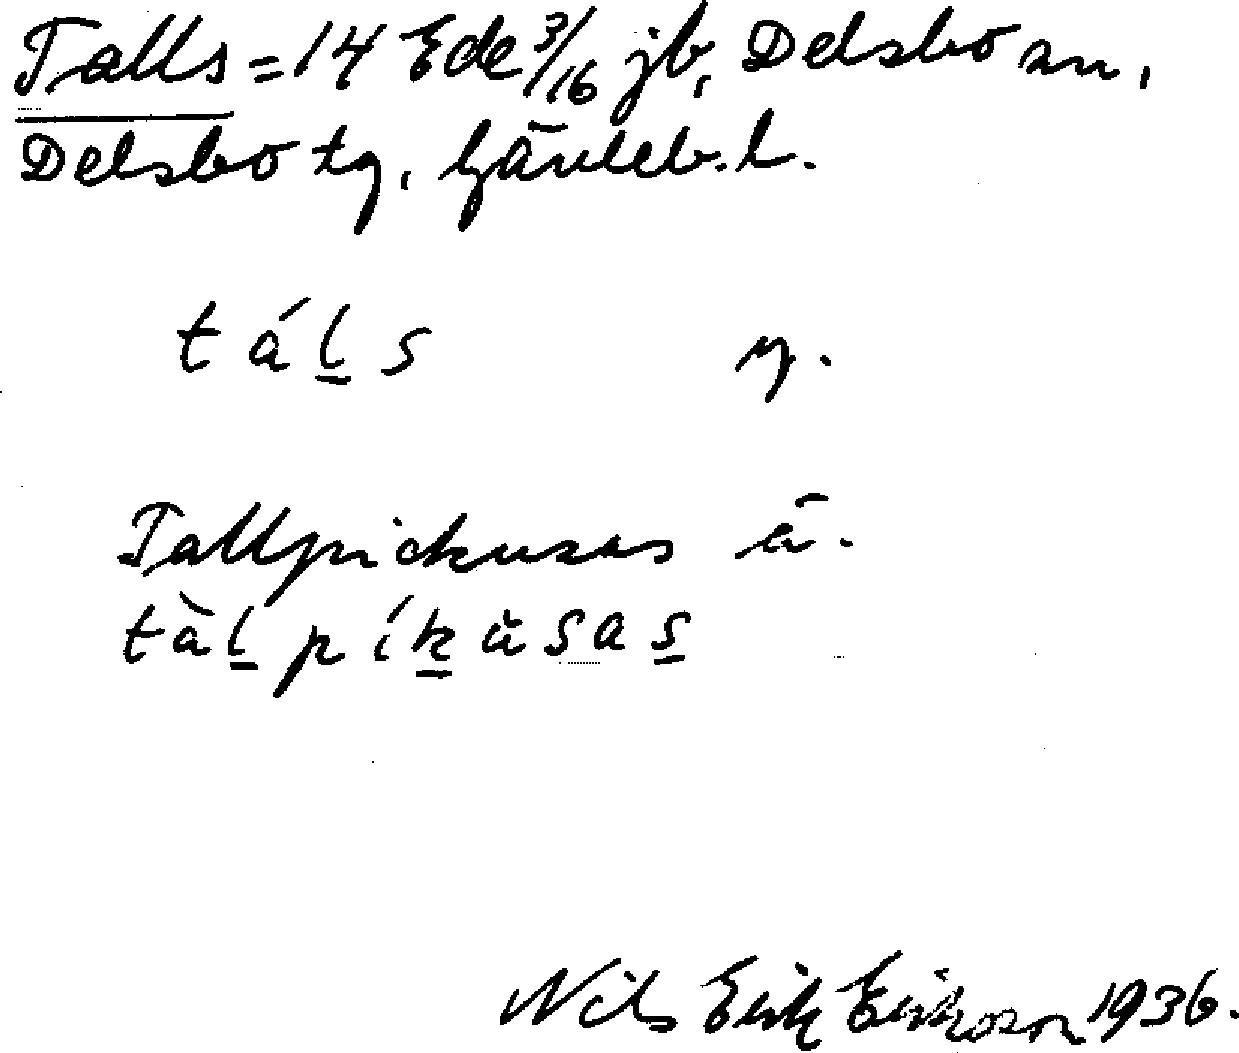 Talls = 14 Ede 3/16 jb, Delsbo sn,
Delsbo tg, Gävleb. l.
táḻs y.
Tallpickusas ä.
tàḻpíḵusas̱
Nils Erik Eriksson 1936.